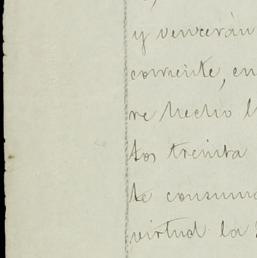 y vencerán
corriente, en
re hecho l
tos treinta
te consum
virtud la